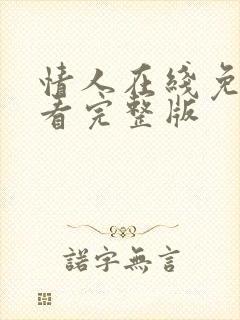 情人在线免
看完整版
諾字無言